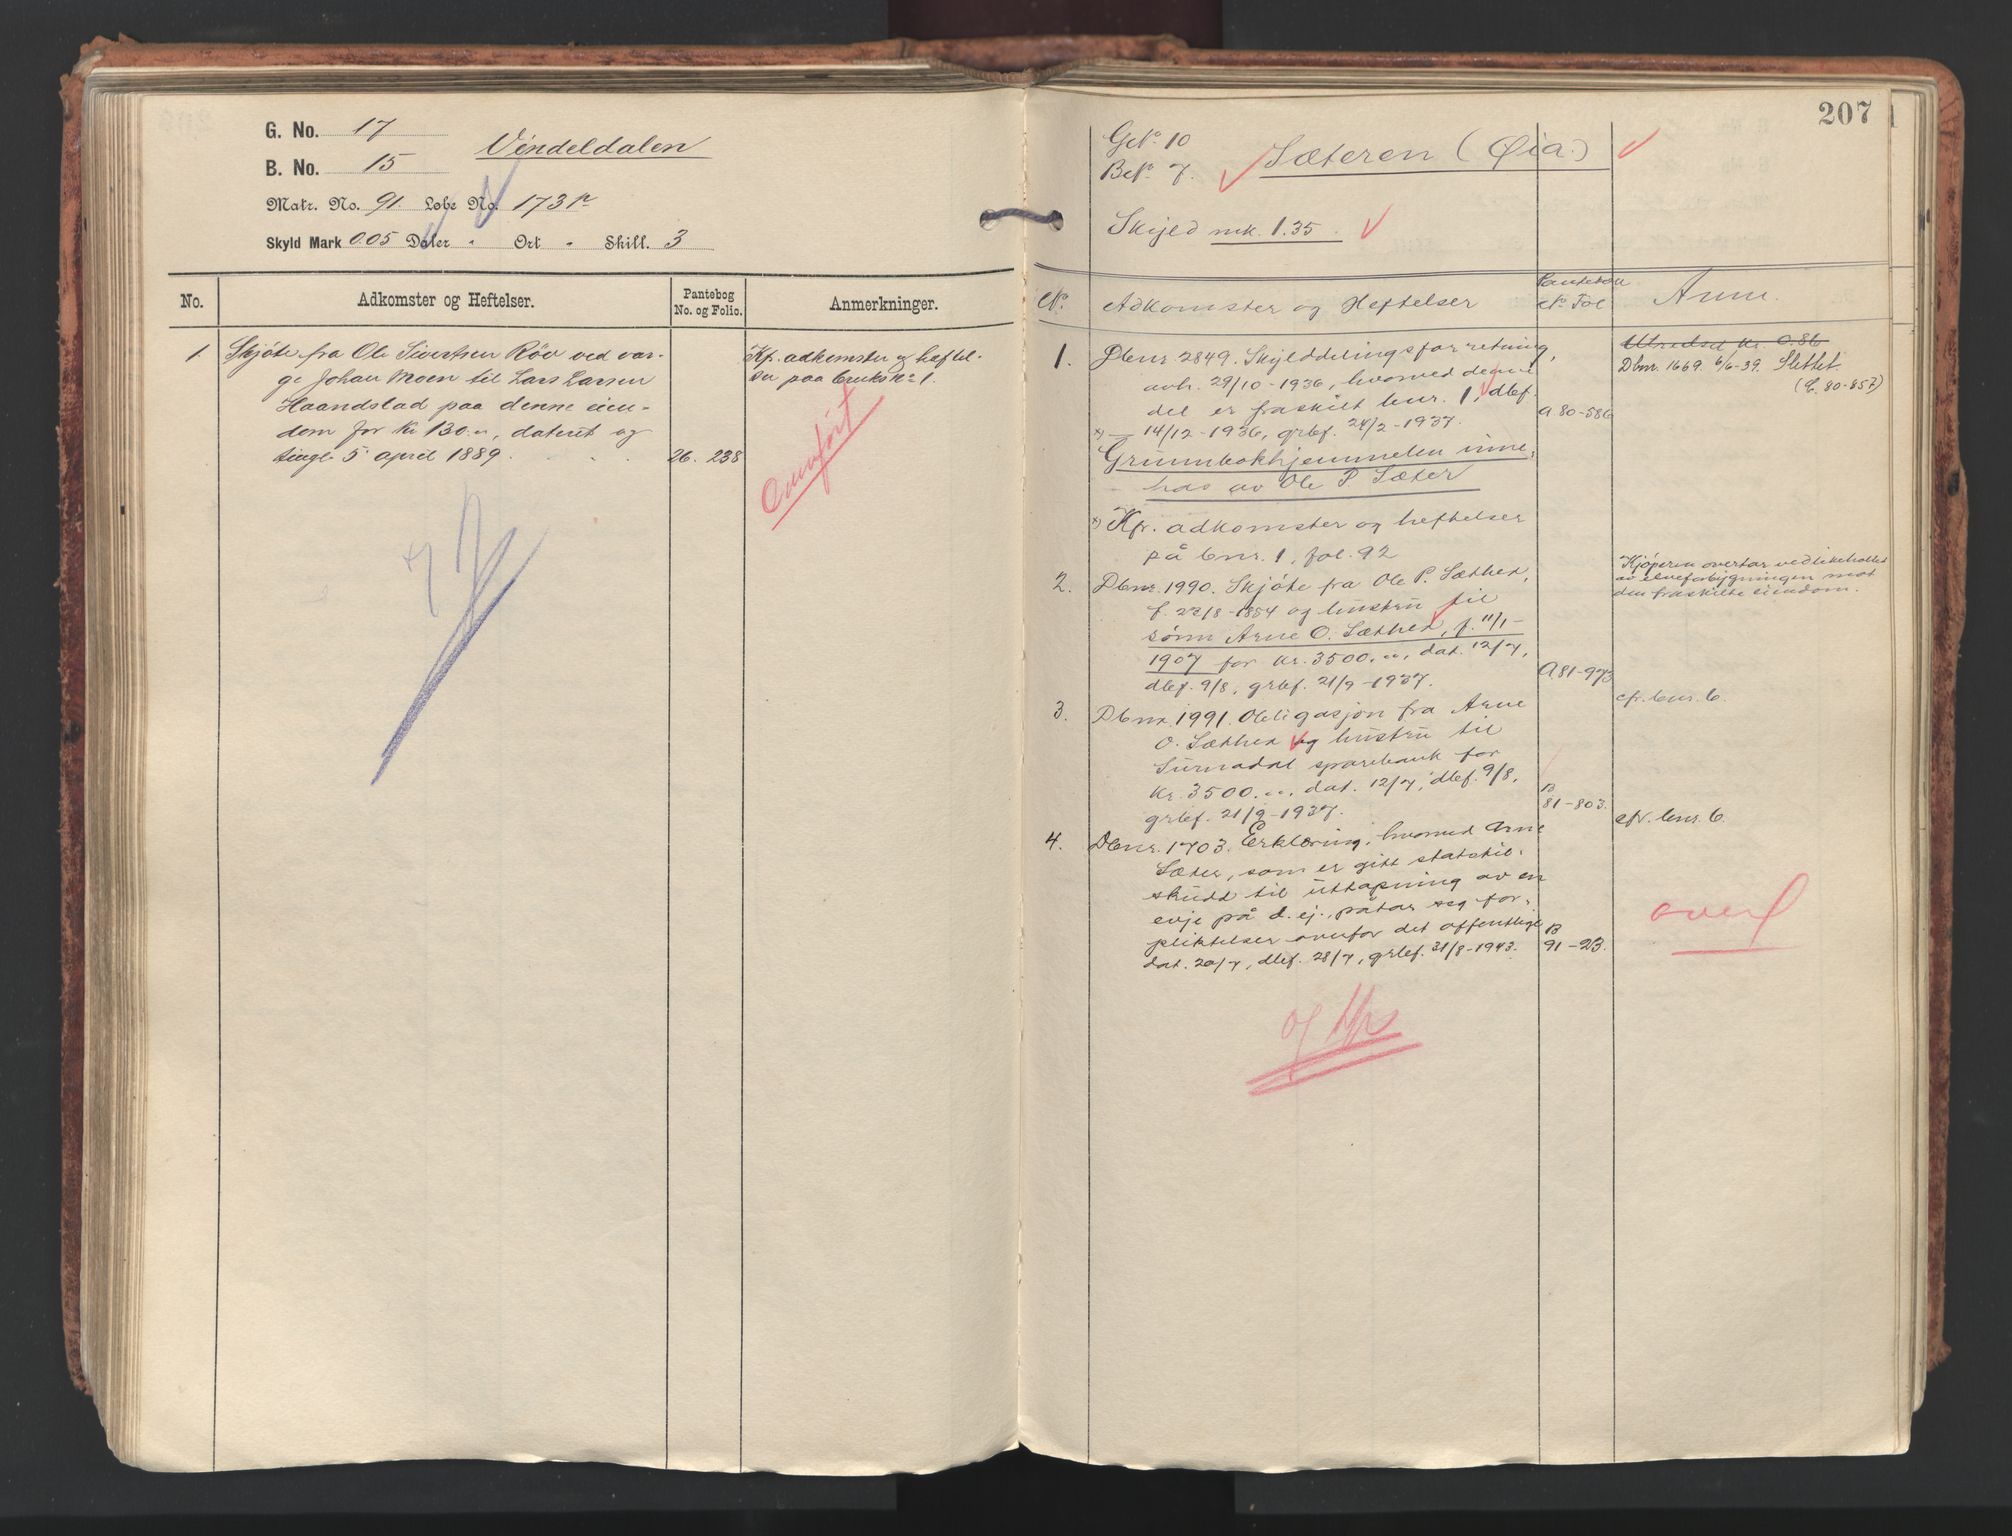 G. No. 17
B. No. 15
Vindeldalen
Matr. No. 91. Løbe No. 173 p
Skyld Mark 0.05 Daler " Ort " Skill. 3
No.
Adkomster og Heftelser.
Pantebog
No. og Folio.
Anmerkninger.
1. Skjøte fra Ole Sivertsen Røv ved var-
ge Johan Moen til Lars Larsen
Haandstad paa denne eien-
dom for Kr 130.", dateret og
tingl. 5 april 1889.
26. 238
Kf. adkomster og hæftel-
ser paa bruks No 1.
Overført
207
G.No. 10
B.No. 7.
Sæteren (Øia.)
Skyld mk. 1.35.
No.
Adkomster og Heftelser
Pantebok
No. Fol
Anm.
1. Dbnr. 2849. Skylddelingsforretning,
avh. 29/10-1936, hvorved denne
del er fraskilt bnr. 1, dbf.
x) 14/12-1936, grbf. 24/2-1937.
A 80-586
Utredsel kr. 0.86
Dbnr. 1669. 6/6-39. Slettet.
(C. 80-857)
Grunnbokhjemmelen inne-
has av Ole P. Sæter
x) Kfr. adkomster og heftelser
på bnr. 1, fol. 92
2. Dbnr. 1990. Skjøte fra Ole P. Sæther,
f. 22/8-1854 og hustru til
sønn Arne O. Sæther, f. 11/1-
1907 for kr. 3500.", dat. 12/7,
dbf. 9/8, grbf. 21/9-1937.
A 81-973
Kjøperen overtar vedlikeholdet
av elveforbygningen mot
den fraskilte eiendom.
cfr. bnr. 6.
3. Dbnr. 1991. Obligasjon fra Arne
O. Sæther og hustru til
Surnadal sparebank for
kr. 3500.", dat. 12/7, dbf. 9/8,
grbf. 21/9-1937.
B
81-803.
cfr. bnr. 6.
4. Dbnr. 1703. Erklæring, hvorved Arne
Sæter, som er gitt statstil-
skudd til uttapning av en
evje på d. ej., påtar seg for-
pliktelser overfor det offentlige
dat. 20/7, dbf. 28/7, grbf. 31/8-1943.
B
91-23.
overf